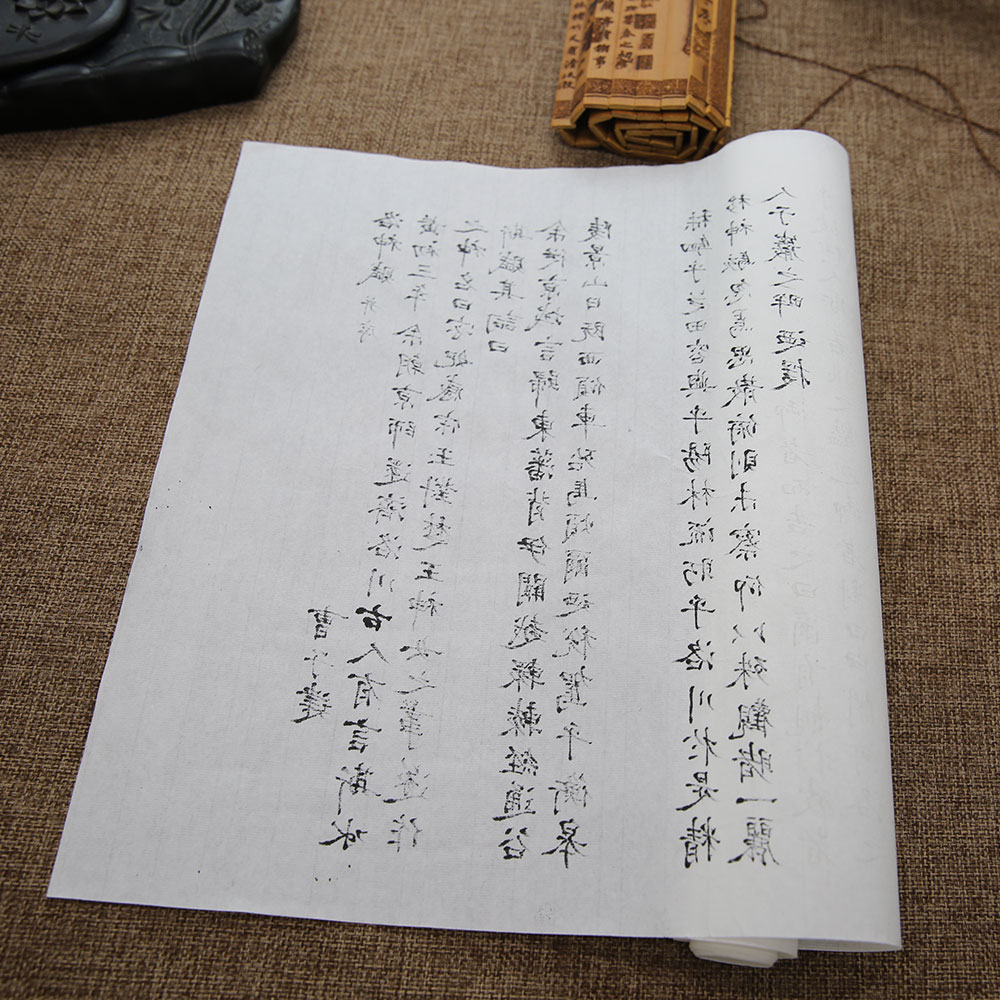 洛神賦 并序 曹子建
黃初三年余朝京師還濟洛川古人有言斯水
之神名曰宓妃感宋玉對楚王神女之事遂作
斯賦其詞曰
余從京域言歸東藩背伊闕越轘轅經通谷
陵景山日既西傾車殆馬煩爾迺稅駕乎衡皋
秣駟乎芝田容與乎陽林流眄乎洛川於是精
移神駭忽焉思散俯則未察仰以殊觀睹一麗
人于巖之畔迺援